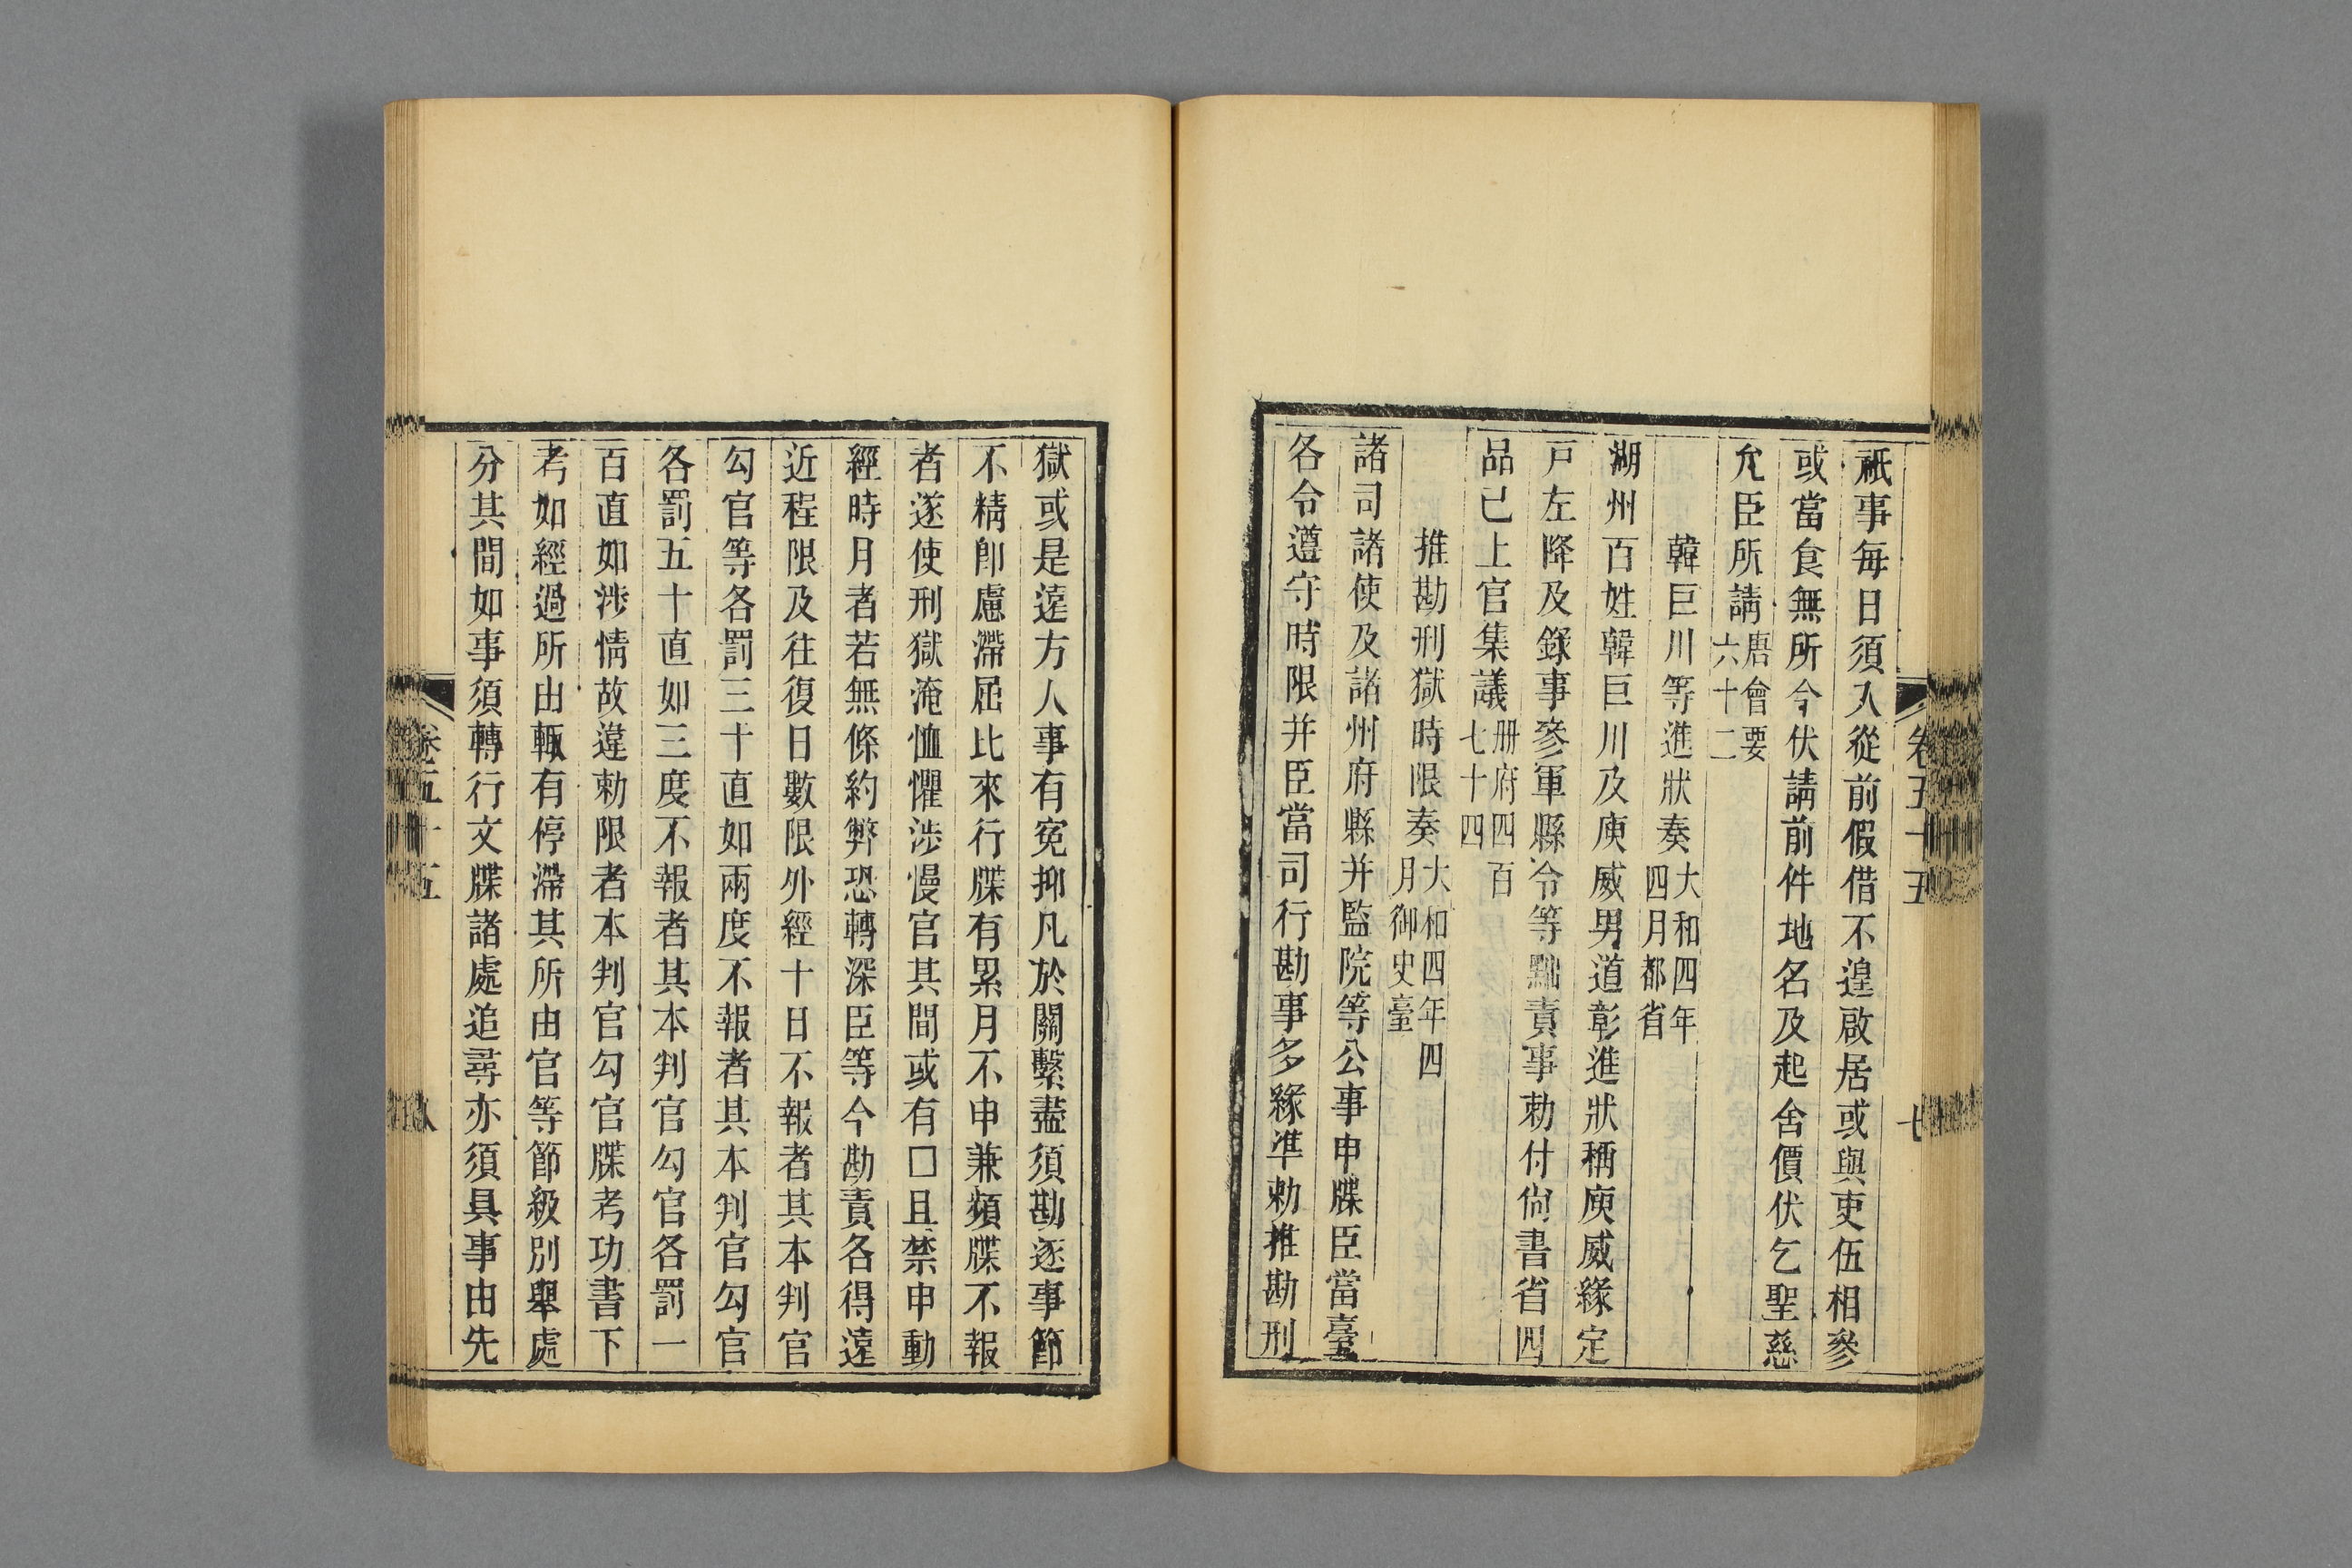 卷五十五
七
祇事每日須入從前假借不遑啟居或與吏伍相參
或當食無所今伏請前件地名及起舍價伏乞聖慈
允臣所請唐會要六十二
韓巨川等進狀奏大和四年四月都省
湖州百姓韓巨川及庾威男道彰進狀稱庾威緣定
戸左降及錄事參軍縣令等黜責事勅付尙書省四
品已上官集議册府四百七十四
推勘刑獄時限奏大和四年四月御史臺
諸司諸使及諸州府縣并監院等公事申牒臣當臺
各令遵守時限并臣當司行勘事多緣準勅推勘刑
獄或是遠方人事有冤抑凡於關繫盡須勘逐事節
不精卽慮滯屈比來行牒有累月不申兼頻牒不報
者遂使刑獄淹恤懼涉慢官其間或有□且禁申動
經時月者若無條約弊恐轉深臣等今勘責各得遠
近程限及往復日數限外經十日不報者其本判官
勾官等各罰三十直如兩度不報者其本判官勾官
各罰五十直如三度不報者其本判官勾官各罰一
百直如涉情故違勅限者本判官勾官牒考功書下
考如經過所由輒有停滯其所由官等節級別舉處
分其間如事須轉行文牒諸處追尋亦須具事由先
卷五十五
八